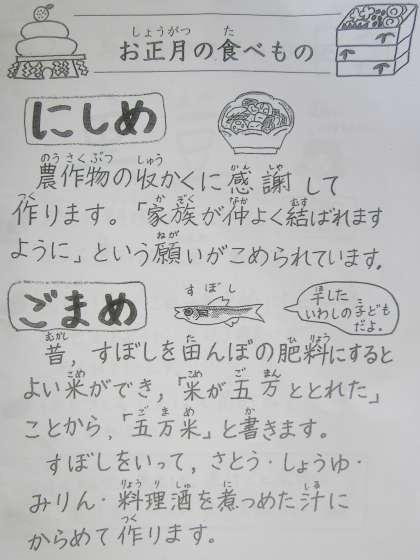 お正月の食べもの
にしめ
農作物の収かくに感謝して
作ります。「家族が仲よく結ばれます
ように」という願いがこめられています。
ごまめ
すぼし
干した
いわしの子ども
だよ。
昔，すぼしを田んぼの肥料にすると
よい米ができ，「米が五万ととれた」
ことから，「五万米」と書きます。
すぼしをいって，さとう・しょうゆ・
みりん・料理酒を煮つめた汁に
からめて作ります。